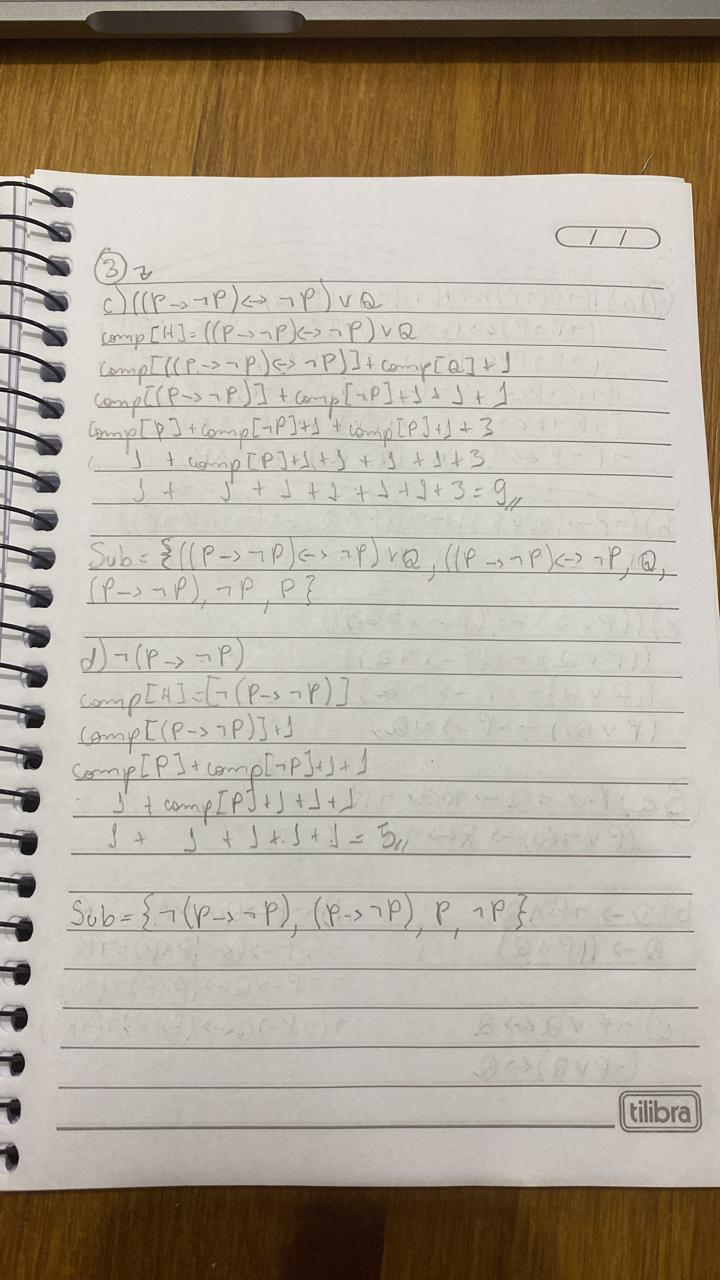 / /
3)
c) ((P → ¬P) ↔ ¬P) ∨ Q
comp[H] = ((P → ¬P) ↔ ¬P) ∨ Q
comp[((P → ¬P) ↔ ¬P)] + comp[Q] + 1
comp[(P → ¬P)] + comp[¬P] + 1 + 1 + 1
comp[P] + comp[¬P] + 1 + comp[P] + 1 + 3
1 + comp[P] + 1 + 1 + 1 + 1 + 3
1 + 1 + 1 + 1 + 1 + 1 + 3 = 9//
Sub = {((P → ¬P) ↔ ¬P) ∨ Q, ((P → ¬P) ↔ ¬P, Q,
(P → ¬P), ¬P, P}
d) ¬(P → ¬P)
comp[H] = [¬(P → ¬P)]
comp[(P → ¬P)] + 1
comp[P] + comp[¬P] + 1 + 1
1 + comp[P] + 1 + 1 + 1
1 + 1 + 1 + 1 + 1 = 5//
Sub = {¬(P → ¬P), (P → ¬P), P, ¬P}
tilibra